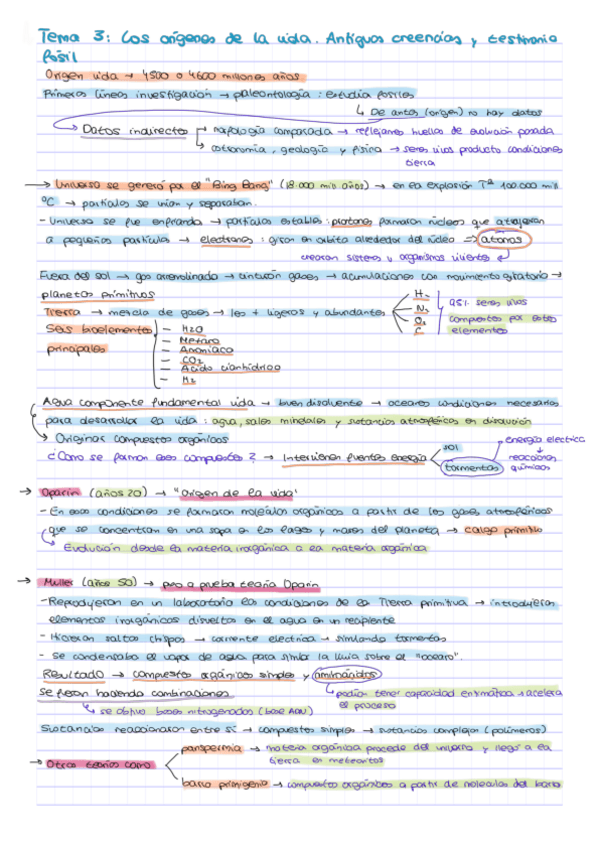 Tema 3: Los orígenes de la vida. Antiguas creencias y testimonio
fósil
Origen vida → 4500 o 4600 millones años
Primeras líneas investigación → paleontología: estudia fósiles
↳ De antes (origen) no hay datos
Datos indirectos → morfología comparada → reflejamos huellas de evolución pasada
↳ astronomía, geología y física → seres vivos producto condiciones
tierra
→ Universo se generó por el "Bing Bang" (18.000 mill años) → en la explosión Tª 100.000 mill
ºC → partículas se unían y separaban.
- Universo se fue enfriando → partículas estables: protones formaron núcleos que atrajeron
a pequeñas partículas → electrones: giran en orbita alrededor del núcleo => átomos
crearan sistemas y organismos vivientes
Fuera del sol → gas arremolinado → cinturón gases → acumulaciones con movimiento giratorio →
planetas primitivos
Tierra → mezcla de gases → los + ligeros y abundantes
H₂
N₂
O₂
C
95% seres vivos
compuestos por estos
elementos
Seis bioelementos
principales
- H2O
- Metano
- Amoniaco
- CO2
- Acido cianhídrico
- H2
Agua componente fundamental vida → buen disolvente → oceanos condiciones necesarias
para desarrollar la vida: agua, sales minerales y sustancias atmosféricas en disolución
↳ Originar compuestos orgánicos
¿Como se forman esos compuestos? → Intervienen fuentes energía
sol
tormentas
energía electrica
→ reacciones
químicas
→ Oparin (años 20) → "Origen de la vida"
- En esas condiciones se formaron moléculas orgánicas a partir de los gases atmosféricos
que se concentran en una sopa en los lagos y mares del planeta → caldo primitivo
↳ Evolución desde la materia inorgánica a la materia orgánica
→ Muller (años 50) → puso a prueba teoría Oparin
- Reprodujeron en un laboratorio las condiciones de la Tierra primitiva → introdujeron
elementos inorgánicos disueltos en el agua en un recipiente
- Hicieron saltar chispas → corriente electrica → simulando tormentas
- Se condensaba el vapor de agua para simular la lluvia sobre el "oceano".
Resultado → compuestos orgánicos simples y aminoácidos
Se fueron haciendo combinaciones
↳ podían tener capacidad enzimática → acelera
el proceso
↳ se obtuvo bases nitrogenadas (base ADN)
Sustancias reaccionaron entre sí → compuestos simples → sustancias complejas (polímeros)
→ Otras teorías como
panspermia → materia orgánica procede del universo y llegó a la
tierra en meteoritos
barro primigenio → compuestos orgánicos a partir de moleculas del barro